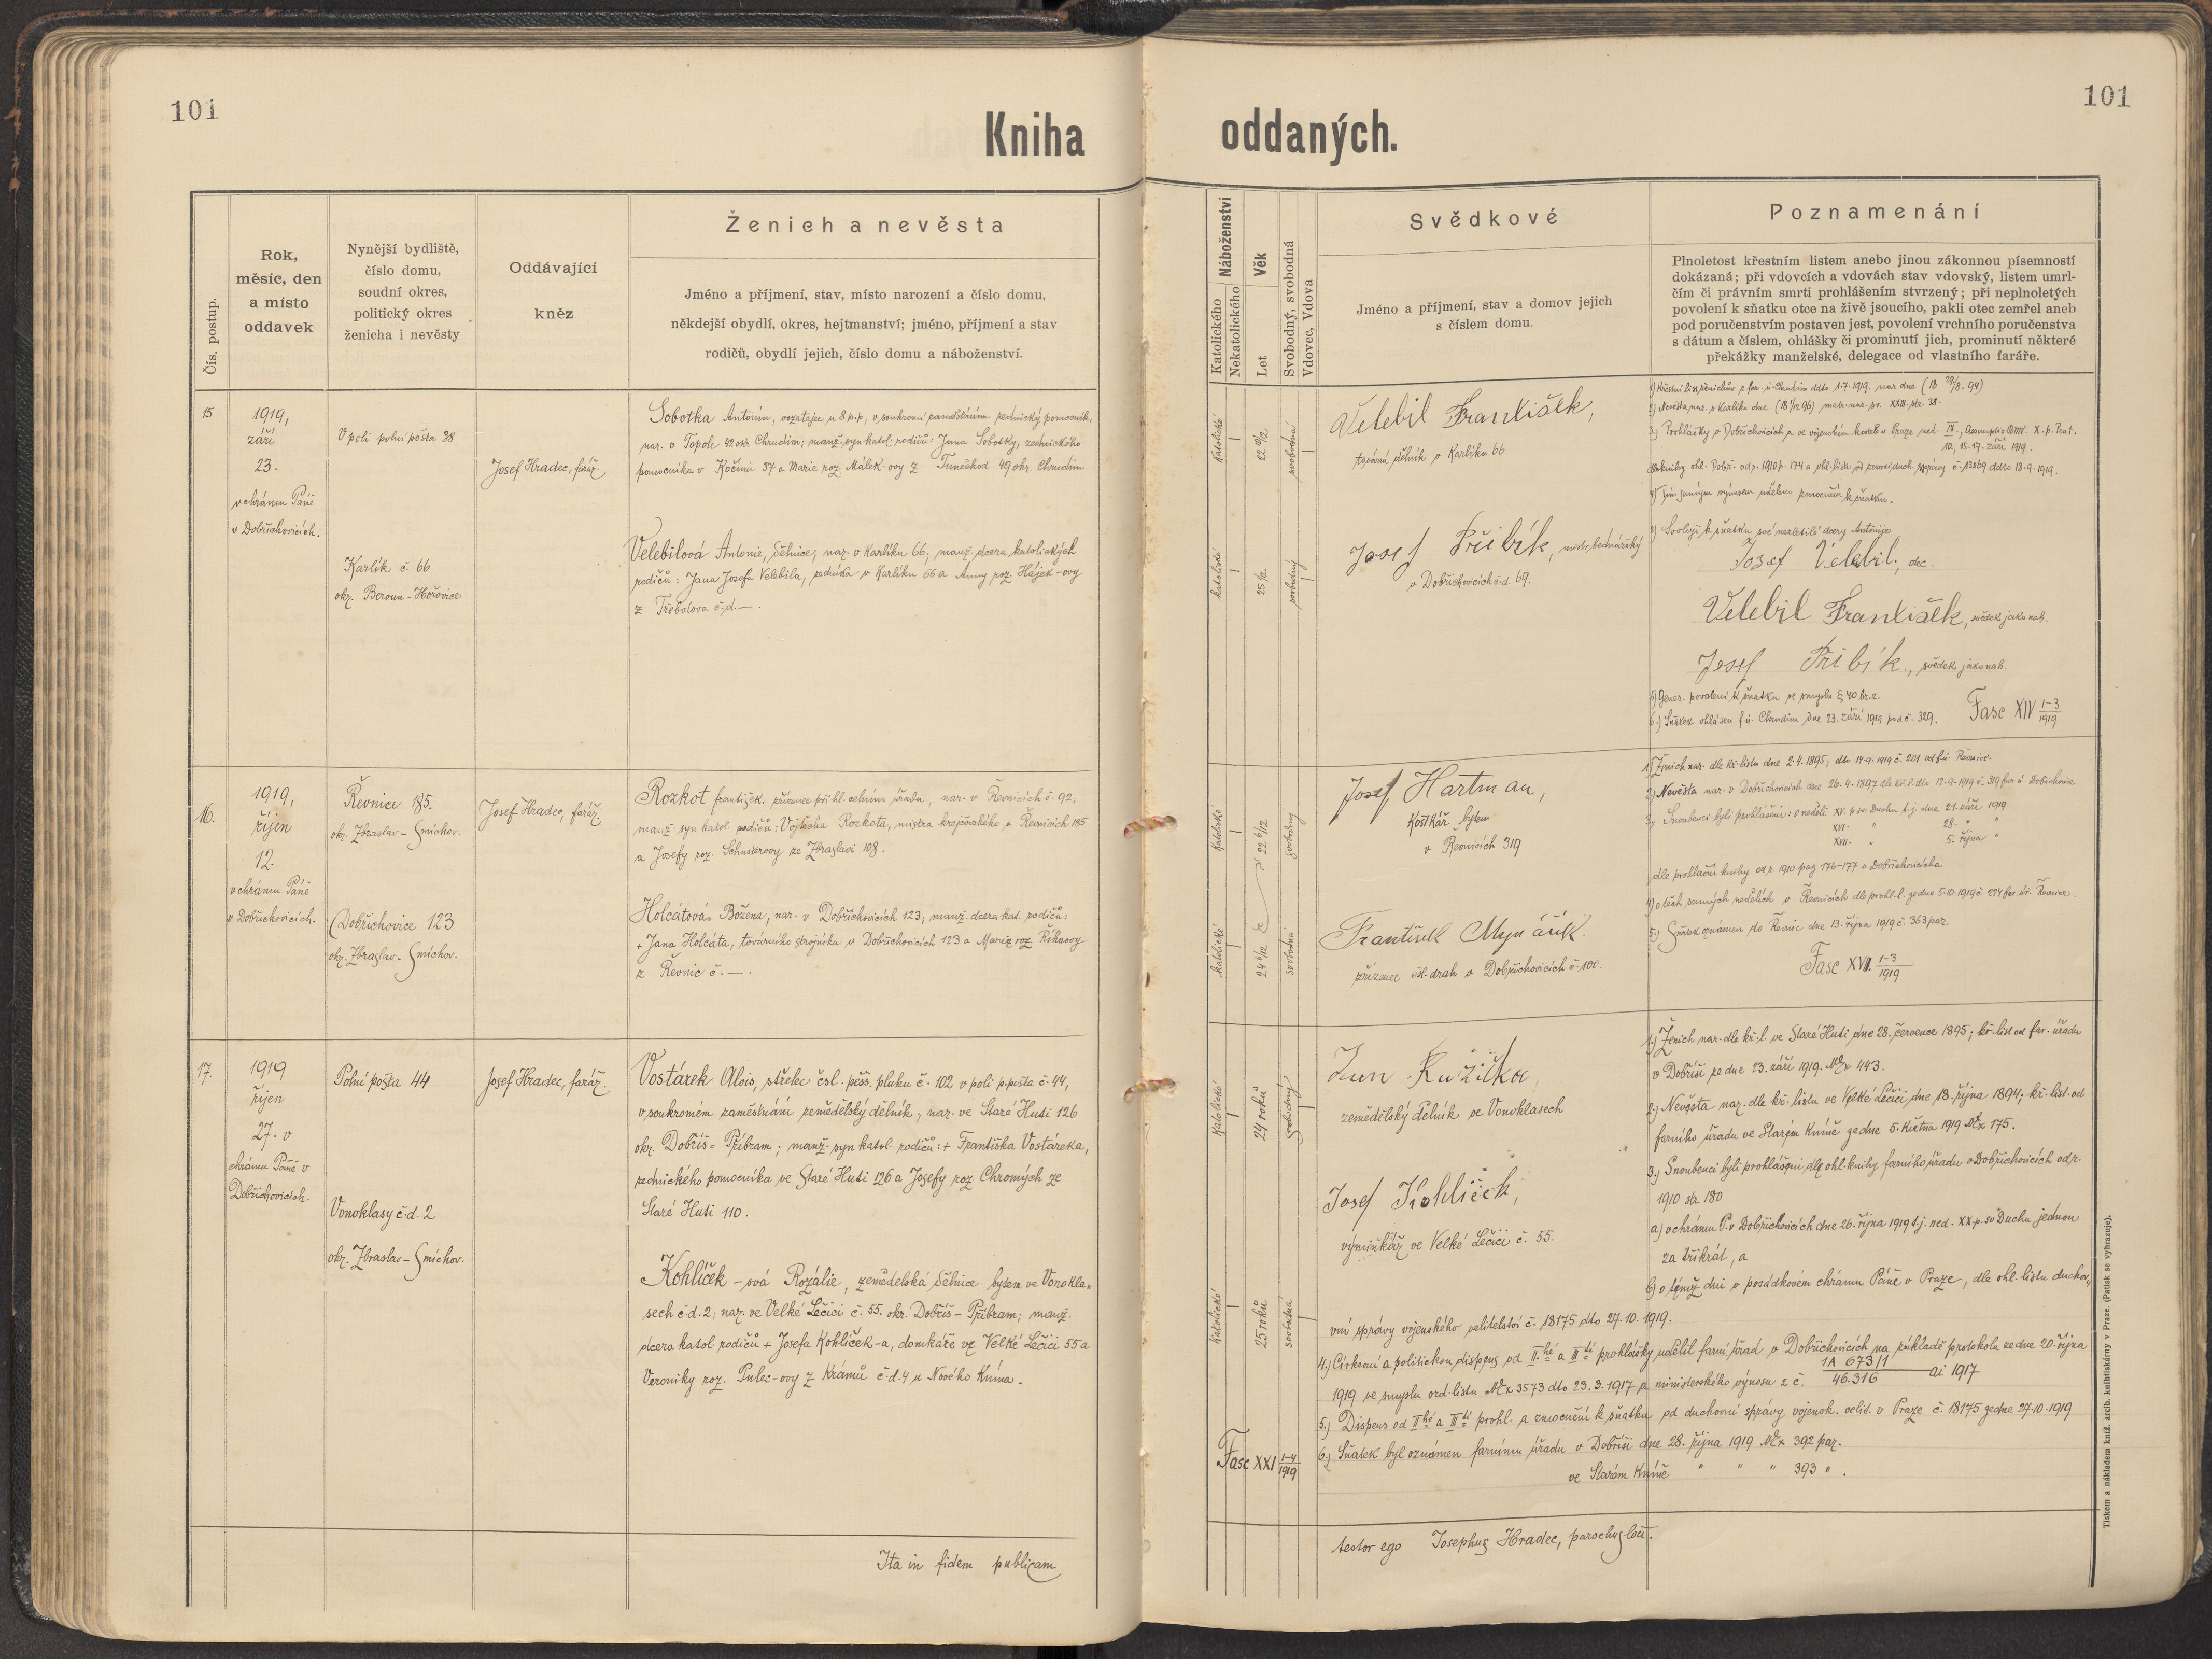 101
101
Kniha
oddaných.
Čís. postup.
Rok,
měsíc, den
a místo
oddavek
Nynější bydliště,
číslo domu,
soudní okres,
politický okres
ženicha i nevěsty
Oddávající
kněz
Ženich a nevěsta
Jméno a příjmení, stav, místo narození a číslo domu,
někdejší obydlí, okres, hejtmanství; jméno, příjmení a stav
rodičů, obydlí jejich, číslo domu a náboženství.
Náboženství
Katolického
Nekatolického
Věk
Let
Svobodný, svobodná
Vdovec, Vdova
Svědkové
Jméno a příjmení, stav a domov jejich
s číslem domu.
Poznamenání
Plnoletost křestním listem anebo jinou zákonnou písemností
dokázaná; při vdovcích a vdovách stav vdovský, listem umrl-
čím či právním smrti prohlášením stvrzený; při neplnoletých
povolení k sňatku otce na živě jsoucího, pakli otec zemřel aneb
pod poručenstvím postaven jest, povolení vrchního poručenstva
s dátum a číslem, ohlášky či prominutí jich, prominutí některé
překážky manželské, delegace od vlastního faráře.
15
1919,
září
23.
v chrámu Páně
v Dobřichovicích.
V poli polní pošta 38
Karlík č. 66
okr. Beroun-Hořovice
Josef Hradec, farář
Sobotka Antonín, vozatajec u 8 p.p., v soukromí zednický pomocník,
nar. v Topole 42 okr. Chrudim; manž. syn katol. rodičů: Jana Sobotky, zednického
pomocníka v Kočími 37 a Marie roz. Málek-ovy z Tuněchod 49 okr. Chrudim
Velebilová Antonie, dělnice, nar. v Karlíku 66. manž. dcera katolických
rodičů: Jana Josefa Velebila, zedníka v Karlíku 66 a Anny roz. Hájek-ovy
z Třebotova č.d.—.
Katolické
22 10/12
svobodná
katolické
25 1/12
svobodný
Velebil František,
tovární dělník v Karlíku 66
Josef Přibík, mistr bednářský
v Dobřichovicích č.d. 69.
2) Nevěsta nar. v Karlíku dne
3.) Prohlášky v Dobřichovicích a ve vojenském kostele v Praze ned. IX., Assumptio BMV. X. p. Pent.
10, 15. 17. září 1919.
5) Svoluji k sňatku své nezletilé dcery Antonie
Josef Velebil, otec.
Velebil František, svědek jako nah.
Josef Přibík, svědek jako nah.
5) Gener. povolení k sňatku ve smyslu § 40 br.z.
6.) Sňatek ohlášen f.ú. Chrudim dne 23. září 1919 pod č. 329. Fasc XIV 1-3/1919
16.
1919,
říjen
12.
v chrámu Páně
v Dobřichovicích.
Řevnice 185.
okr. Zbraslav-Smíchov.
Dobřichovice 123
okr. Zbraslav-Smíchov.
Josef Hradec, farář.
Rozkot František, zřízenec při hl. celním úřadu, nar. v Řevnicích č. 92,
manž. syn katol. rodičů: Vojtěcha Rozkota, mistra krejčovského v Řevnicích 185
a Josefy roz. Schusterovy ze Zbraslavi 108.
Holcátová Božena, nar. v Dobřichovicích 123; manž. dcera kat. rodičů:
+ Jana Holcáta, továrního strojníka v Dobřichovicích 123 a Marie roz. Říhaovy
z Řevnic č. —.
Katolické
22 6/12
svobodný
katolické
24 6/12
svobodná
Josef Hartman,
Košíkář bytem
v Řevnicích 319
František Mlynářík.
zřízenec čsl. drah v Dobřichovicích č. 100.
1) Ženich nar. dle kř. listu dne 2.4.1895; dto 14.9.1919 č. 201 od f.ú. Řevnice.
2) Nevěsta nar. v Dobřichovicích dne 26.4.1897 dle kř.l. dto 12.9.1919 č. 319 far. ú. Dobřichovice
3) Snoubenci byli prohlášeni: v neděli XV. p. sv. Duchu t.j. dne 21. září 1919
XVI. " 28. " "
XVII. " 5. října "
dle prohlášní knihy od r. 1910 pag 176-177 v Dobřichovicích a
4) o těch samých nedělích v Řevnicích dle prohl. l. ze dne 5.10.1919 č. 224 far. úř. Řevnice.
5.) Sňatek oznámen do Řevnic dne 13. října 1919 č. 363 paz.
Fasc XVII. 1-3/1919
17.
1919
říjen
27. v
chrámu Páně v
Dobřichovicích.
Polní pošta 44
Vonoklasy č.d. 2
okr. Zbraslav-Smíchov.
Josef Hradec, farář.
Vostárek Alois, střelec čsl. pěš. pluku č. 102 v poli p. pošta č. 44,
v soukromém zaměstnání zemědělský dělník, nar. ve Staré Huti 126
okr. Dobříš-Příbram; manž. syn katol. rodičů: + Františka Vostáreka,
zednického pomocníka ve Staré Huti 126 a Josefy roz. Chromých ze
Staré Huti 110.
Kohlíček-ová Rozálie, zemědělská dělnice bytem ve Vonokla-
sech č.d. 2; nar. ve Velké Lečici č. 55. okr. Dobříš-Příbram; manž.
dcera katol. rodičů + Josefa Kohlíček-a, domkáře ve Velké Lečici 55 a
Veroniky roz. Pulec-ovy z Krámů č.d. 4 u Nového Knína.
Katolické
24 roků
svobodný
Katolické
25 roků
svobodná
Jan Ružička,
zemědělský dělník ve Vonoklasech
Josef Kohlíček,
výminkář ve Velké Lečici č. 55.
1.) Ženich nar. dle kř. l. ve Staré Huti dne 28. července 1895; kř. list od far. úřadu
v Dobříši ze dne 23. září 1919. Nex 443.
2.) Nevěsta nar. dle kř. listu ve Velké Lečici dne 18. října 1894; kř. list. od
farního úřadu ve Starém Kníně ze dne 5. května 1919 Nex 175.
3.) Snoubenci byli prohlášeni dle ohl. knihy farního úřadu v Dobřichovicích od r.
1910 str. 180
a) v chrámu P. v Dobřichovicích dne 26. října 1919 t.j. ned. XX. p. sv. Duchu jednou
za třikrát, a
b) o témž dni v posádkovém chrámu Páně v Praze, dle ohl. listu duchov-
vní správy vojenského velitelství č. 18175 dto 27.10.1919.
4.) Církevní a politickou dispens od II.hé a III.tí prohlášky udělil farní úřad v Dobřichovicích na základě protokolu ze dne 20. října
1919 ve smyslu ord. listu Nex 3573 dto 23.3.1917 a ministerského výnosu z č. 1A 673/1 / 46.316 ai 1917
5.) Dispens od II.hé a III.tí prohl. a zmocnění k sňatku od duchovní správy vojensk. velit. v Praze č. 18175 ze dne 27.10.1919
6.) Sňatek byl oznámen farnímu úřadu v Dobříši dne 28. října 1919 Nex 392 paz.
ve Starém Kníně " " " 393 ".
Fasc XXI 1-4/1919
Ita in fidem publicam
testor ego Josephus Hradec, parochus loci.
Tiskem a nákladem kníž. arcib. knihtiskárny v Praze. (Patisk se vyhrazuje).